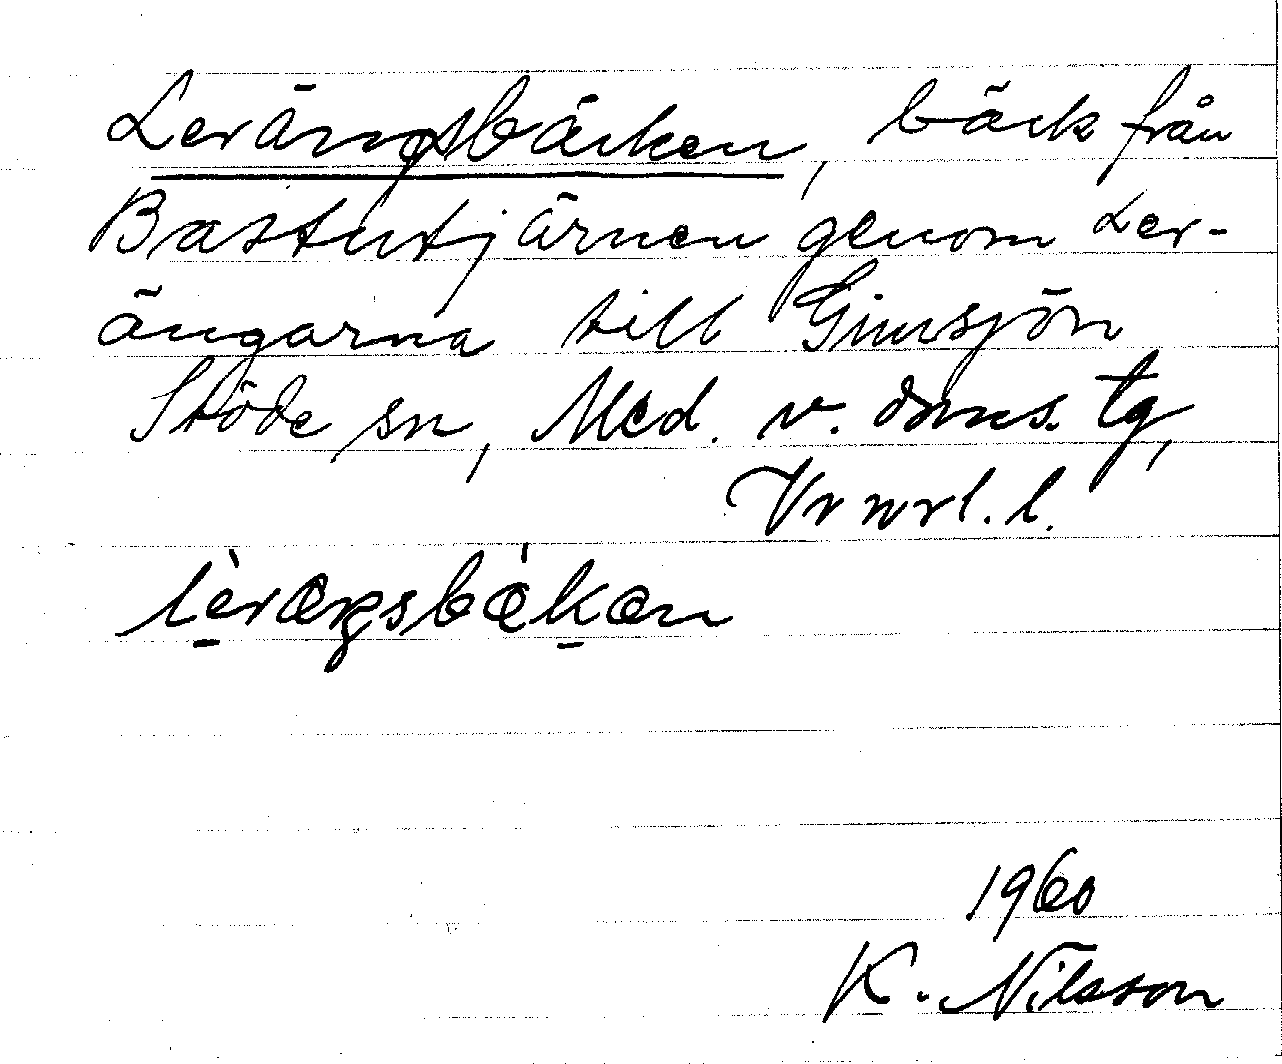 Lerängsbäcken, bäck från
Bastutjärnen genom Ler-
ängarna till Gimsjön
Stöde sn, Med. v. doms. tg,
l.l.
lèræŋsbǽkæn
1960
K. Nilsson